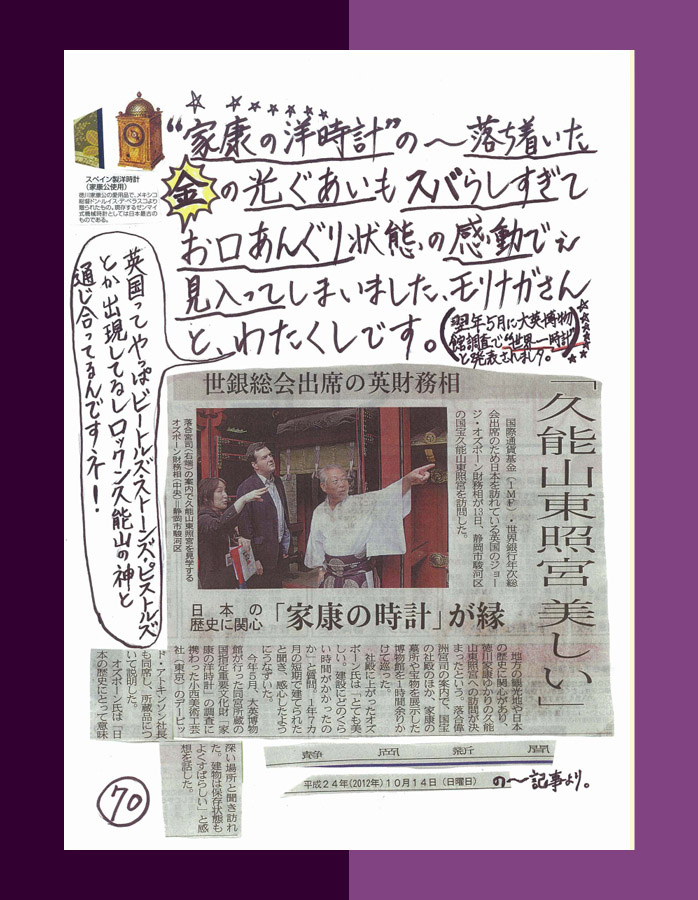 スペイン製洋時計
（家康公使用）
徳川家康公の愛用品で、メキシコ
総督ドン・ルイス・デ・ベラスコより
贈られたもの。現存するゼンマイ
式機械時計としては日本最古の
ものである。
“家康の洋時計”の〜落ち着いた
金の光ぐあいもスバらしすぎて
お口あんぐり状態、の感動でぇ
見入ってしまいました、モリナガさん
と、わたくしです。
(翌年5月に大英博物
館調査で“世界一時計”
と発表されました。)
英国ってやっぱビートルズ・ストーンズ・ピストルズ
とか出現してるしロックン久能山の神と
通じ合ってるんですネー！
世銀総会出席の英財務相
「久能山東照宮 美しい」
国際通貨基金（ＩＭＦ）・世界銀行年次総
会出席のため日本を訪れている英国のジョー
ジ・オズボーン財務相が13日、静岡市駿河区
の国宝久能山東照宮を訪問した。
落合宮司（右端）の案内で久能山東照宮を見学する
オズボーン財務相（中央）＝静岡市駿河区
日本の
歴史に関心
「家康の時計」が縁
地方の観光地や日本
の歴史に関心があり、
徳川家康ゆかりの久能
山東照宮への訪問が決
まったという。落合偉
洲宮司の案内で、国宝
の社殿のほか、家康の
墓所や宝物を展示した
博物館を１時間余りか
けて巡った。
社殿に上がったオズ
ボーン氏は「とても美
しい。建設にどのくら
い時間がかかったの
か」と質問。１年７カ
月の短期で建てられた
と聞き、感心したよう
にうなずいた。
今年５月、大英博物
館が行った同宮所蔵の
国指定重要文化財「家
康の洋時計」の調査に
携わった小西美術工芸
社（東京）のデービッ
ド・アトキンソン社長
も同席し、所蔵品につ
いて説明した。
オズボーン氏は「日
本の歴史にとって意味
深い場所と聞き訪れ
た。建物は保存状態も
よくすばらしい」と感
想を話した。
静岡新聞
平成24年(2012年)10月14日（日曜日）
の〜記事より。
70